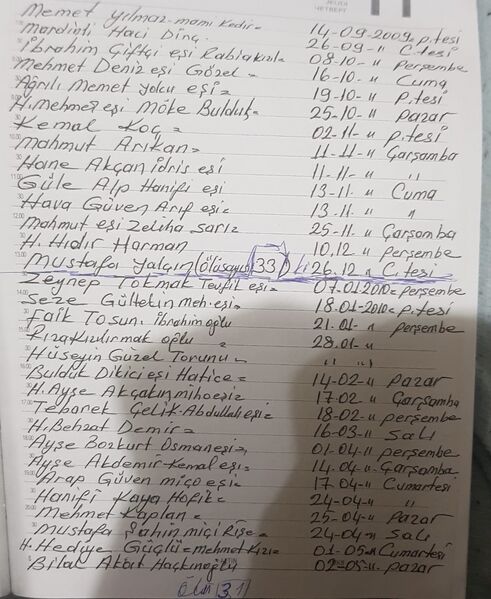 ЧЕТВЕРГ 11
Memet yılmaz-mamı Kedir= 14-09-2009= p.tesi
Mardinti Haci Dinç. 26-09-" C.tesi
İbrahim Çiftçi eşi Rabiakızıl= 08-10-" perşembe
Mehmet Deniz eşi Gözel= 16-10-" Cuma
Ağrılı Memet yolcu eşi= 19-10-" p.tesi
H.Mehmet eşi Möke Bulduk= 25-10-" pazar
Kemal Koç= 02-11-" p.tesi
Mahmut Arıkan= 11-11-" Çarşamba
Hane Akçan idris eşi 11-11-" "
Güle Alp Hanifi eşi 13-11-" Cuma
Hava Güven Arif eşi= 13-11." "
Mahmut eşi Zeliha Sarız 25-11-" Çarşamba
H. Hıdır Harman 10.12 " perşembe
Mustafa Yalçın (ölü sayısı 33) 26.12 " C.tesi
Zeynep Tokmak Tevfik eşi= 07.01.2010= perşembe
Seze Gültekin meh.eşi= 18.01-2010= p.tesi
Faik Tosun İbrahim oğlu 21.01-" perşembe
Rıza Kızılırmak oğlu 28.01-" "
Hüseyin Güzel Torunu- " " "
Bulduk Dikici eşi Hatice= 14-02-" pazar
H.Ayşe Akçakın miho eşiz 17-02 " Çarşamba
Tebanek Çelik-Abdullah eşi= 18-02-" perşembe
H.Behzat Demir= 16-03-" Salı
Ayşe Bozkurt Osman eşi= 01-04-" perşembe
Ayşe Akdemir-Kemal eşi= 14.04-" Çarşamba
Arap Güven miço eşi= 17-04 " Cumartesi
Hanifi Kaya Hofik= 24-04-" "
Mehmet Kaplan= 25-04-" Pazar
Mustafa Şahin miçi Rişe= 24-04-" Salı
H.Hediye Güçlü=mehmet Kızı= 01-05-" Cumartesi
Bilal Akbıt Haçkınoğlu 02-05-" pazar
Ölü (31)